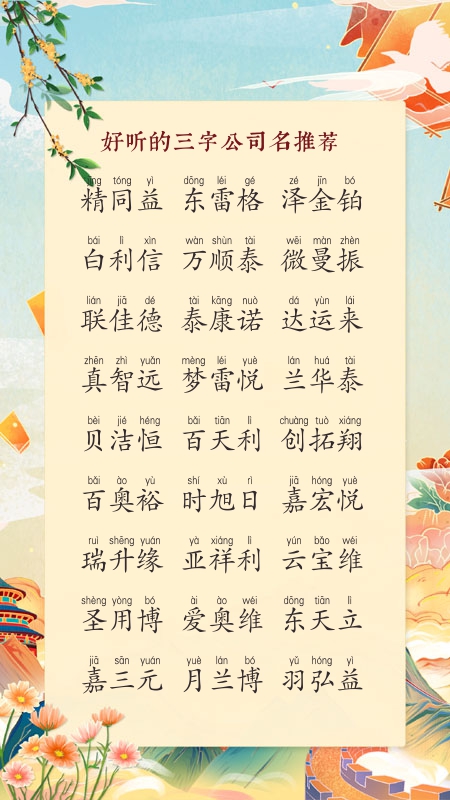 好听的三字公司名推荐
jīng tóng yì dōng léi gé zé jīn bó
精同益 东雷格 泽金铂
bái lì xìn wàn shùn tài wēi màn zhèn
白利信 万顺泰 微曼振
lián jiā dé tài kāng nuò dá yùn lái
联佳德 泰康诺 达运来
zhēn zhì yuǎn mèng léi yuè lán huá tài
真智远 梦雷悦 兰华泰
bèi jié héng bǎi tiān lì chuàng tuò xiáng
贝洁恒 百天利 创拓翔
bǎi ào yù shí xù rì jiā hóng yuè
百奥裕 时旭日 嘉宏悦
ruì shēng yuán yà xiáng lì yún bǎo wéi
瑞升缘 亚祥利 云宝维
shèng yòng bó ài ào wéi dōng tiān lì
圣用博 爱奥维 东天立
jiā sān yuán yuè lán bó yǔ hóng yì
嘉三元 月兰博 羽弘益